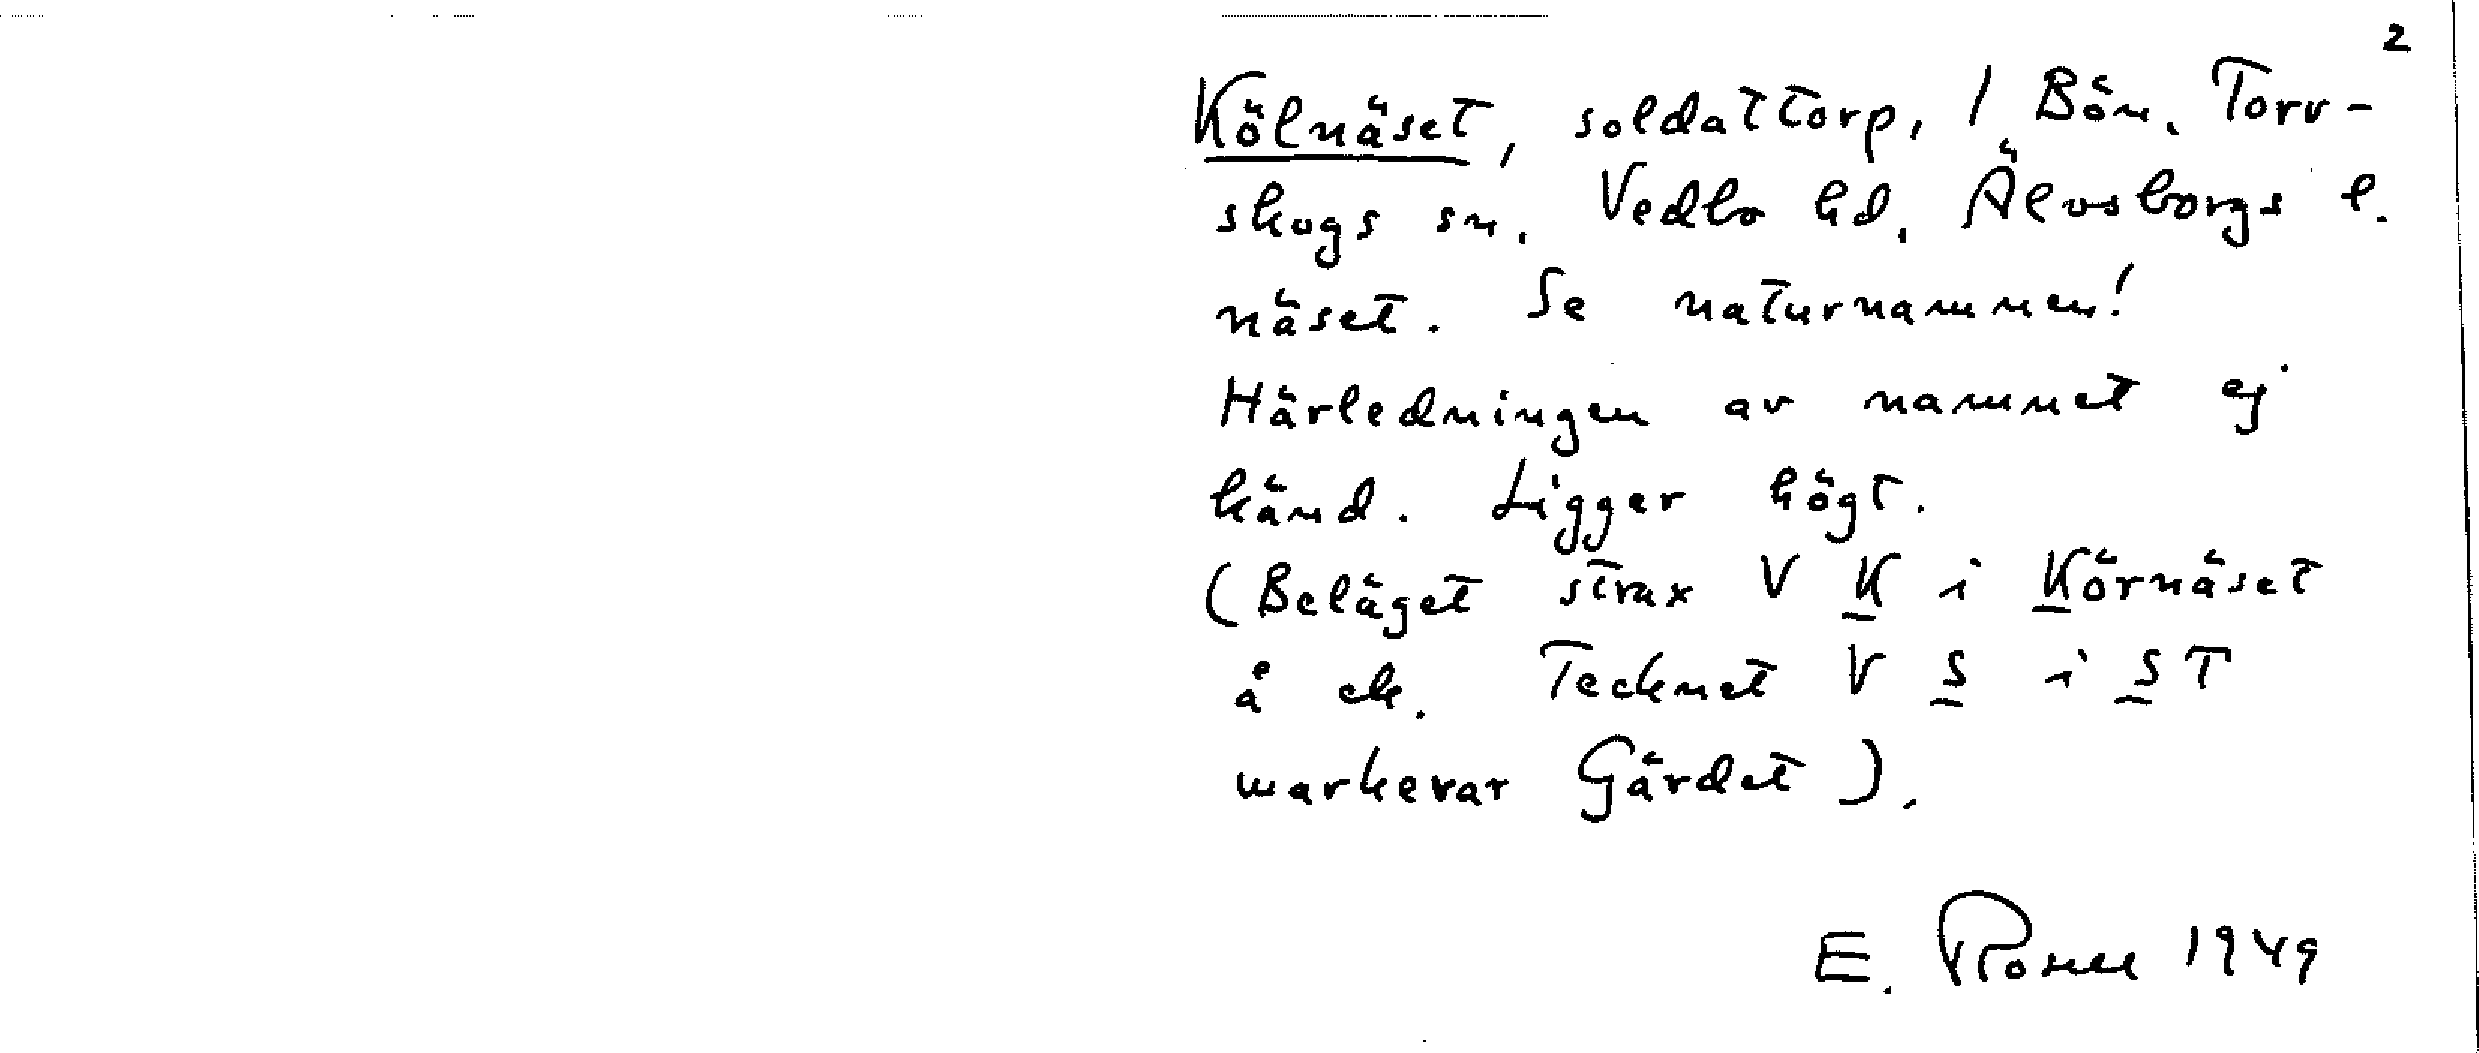 2
Kölnäset, soldattorp, 1 Bön. Torr-
skogs sn. Vedbo hd. Älvsborgs l.
näset. Se naturnamnen!
Härledningen av namnet ej
känd. Ligger högt.
(Beläget strax V K i Körnäset
å ek. Tecknet V S i ST
markerar Gärdet).
E. Rosell 1949